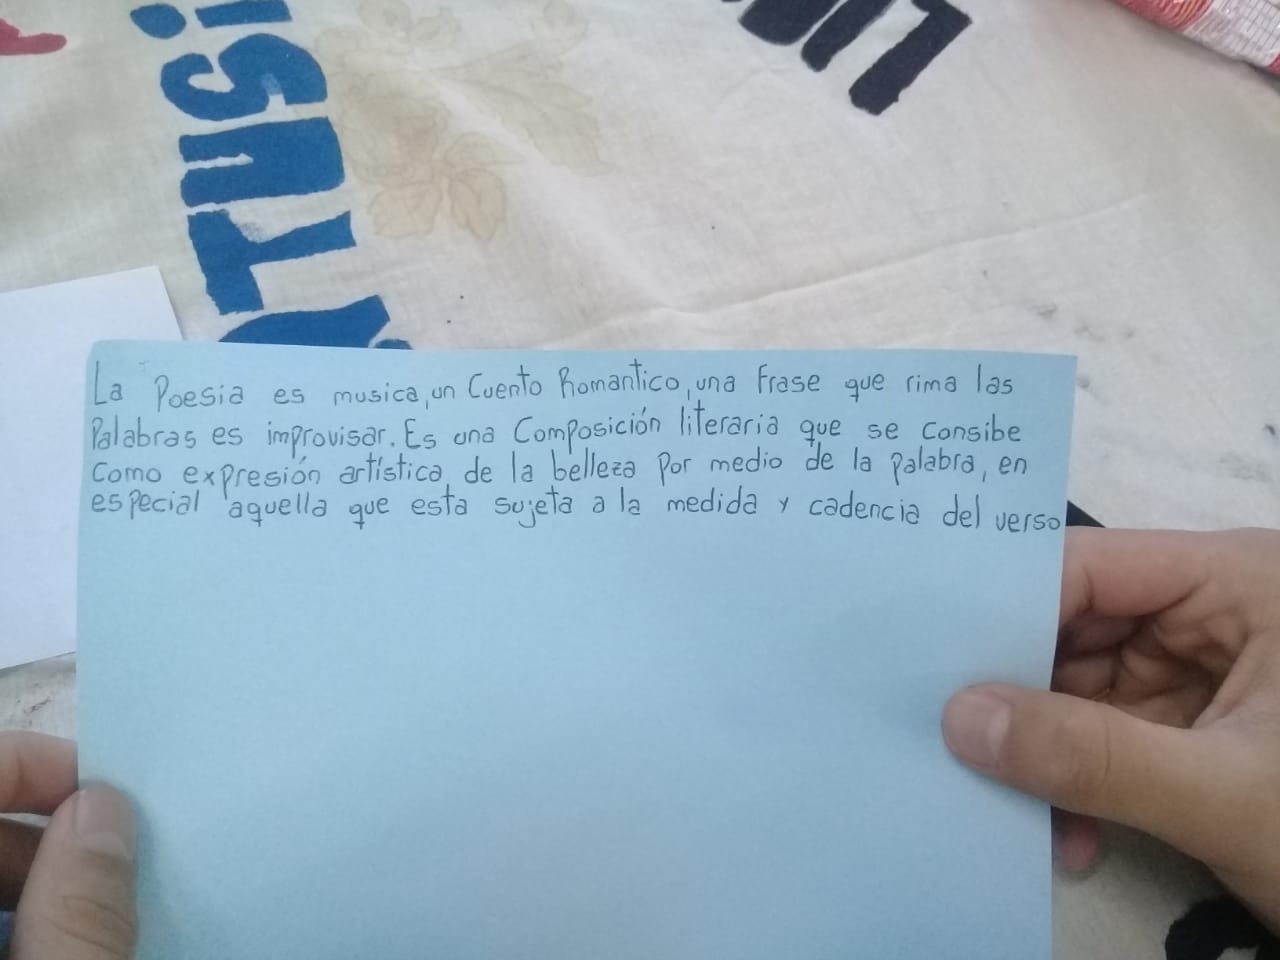 La Poesia es musica, un Cuento Romantico, una Frase que rima las
Palabras es improvisar. Es una Composición literaria que se consibe
Como expresión artística de la belleza Por medio de la palabra, en
especial aquella que esta sujeta a la medida y cadencia del verso